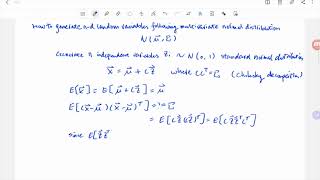 How to generate n-d random variables following multivariate normal distribution
N(μ⃗, Σ)
Generate n independent variables zᵢ ~ N(0, 1) standard normal distribution
x⃗ = μ⃗ + Lz⃗ where LLᵀ = Σ (Cholesky decomposition)
E[x⃗] = E[μ⃗ + Lz⃗] = μ⃗
E[(x⃗-μ⃗)(x⃗-μ⃗)ᵀ] = Σ
= E[Lz⃗(Lz⃗)ᵀ] = E[Lz⃗z⃗ᵀLᵀ]
since E[z⃗z⃗